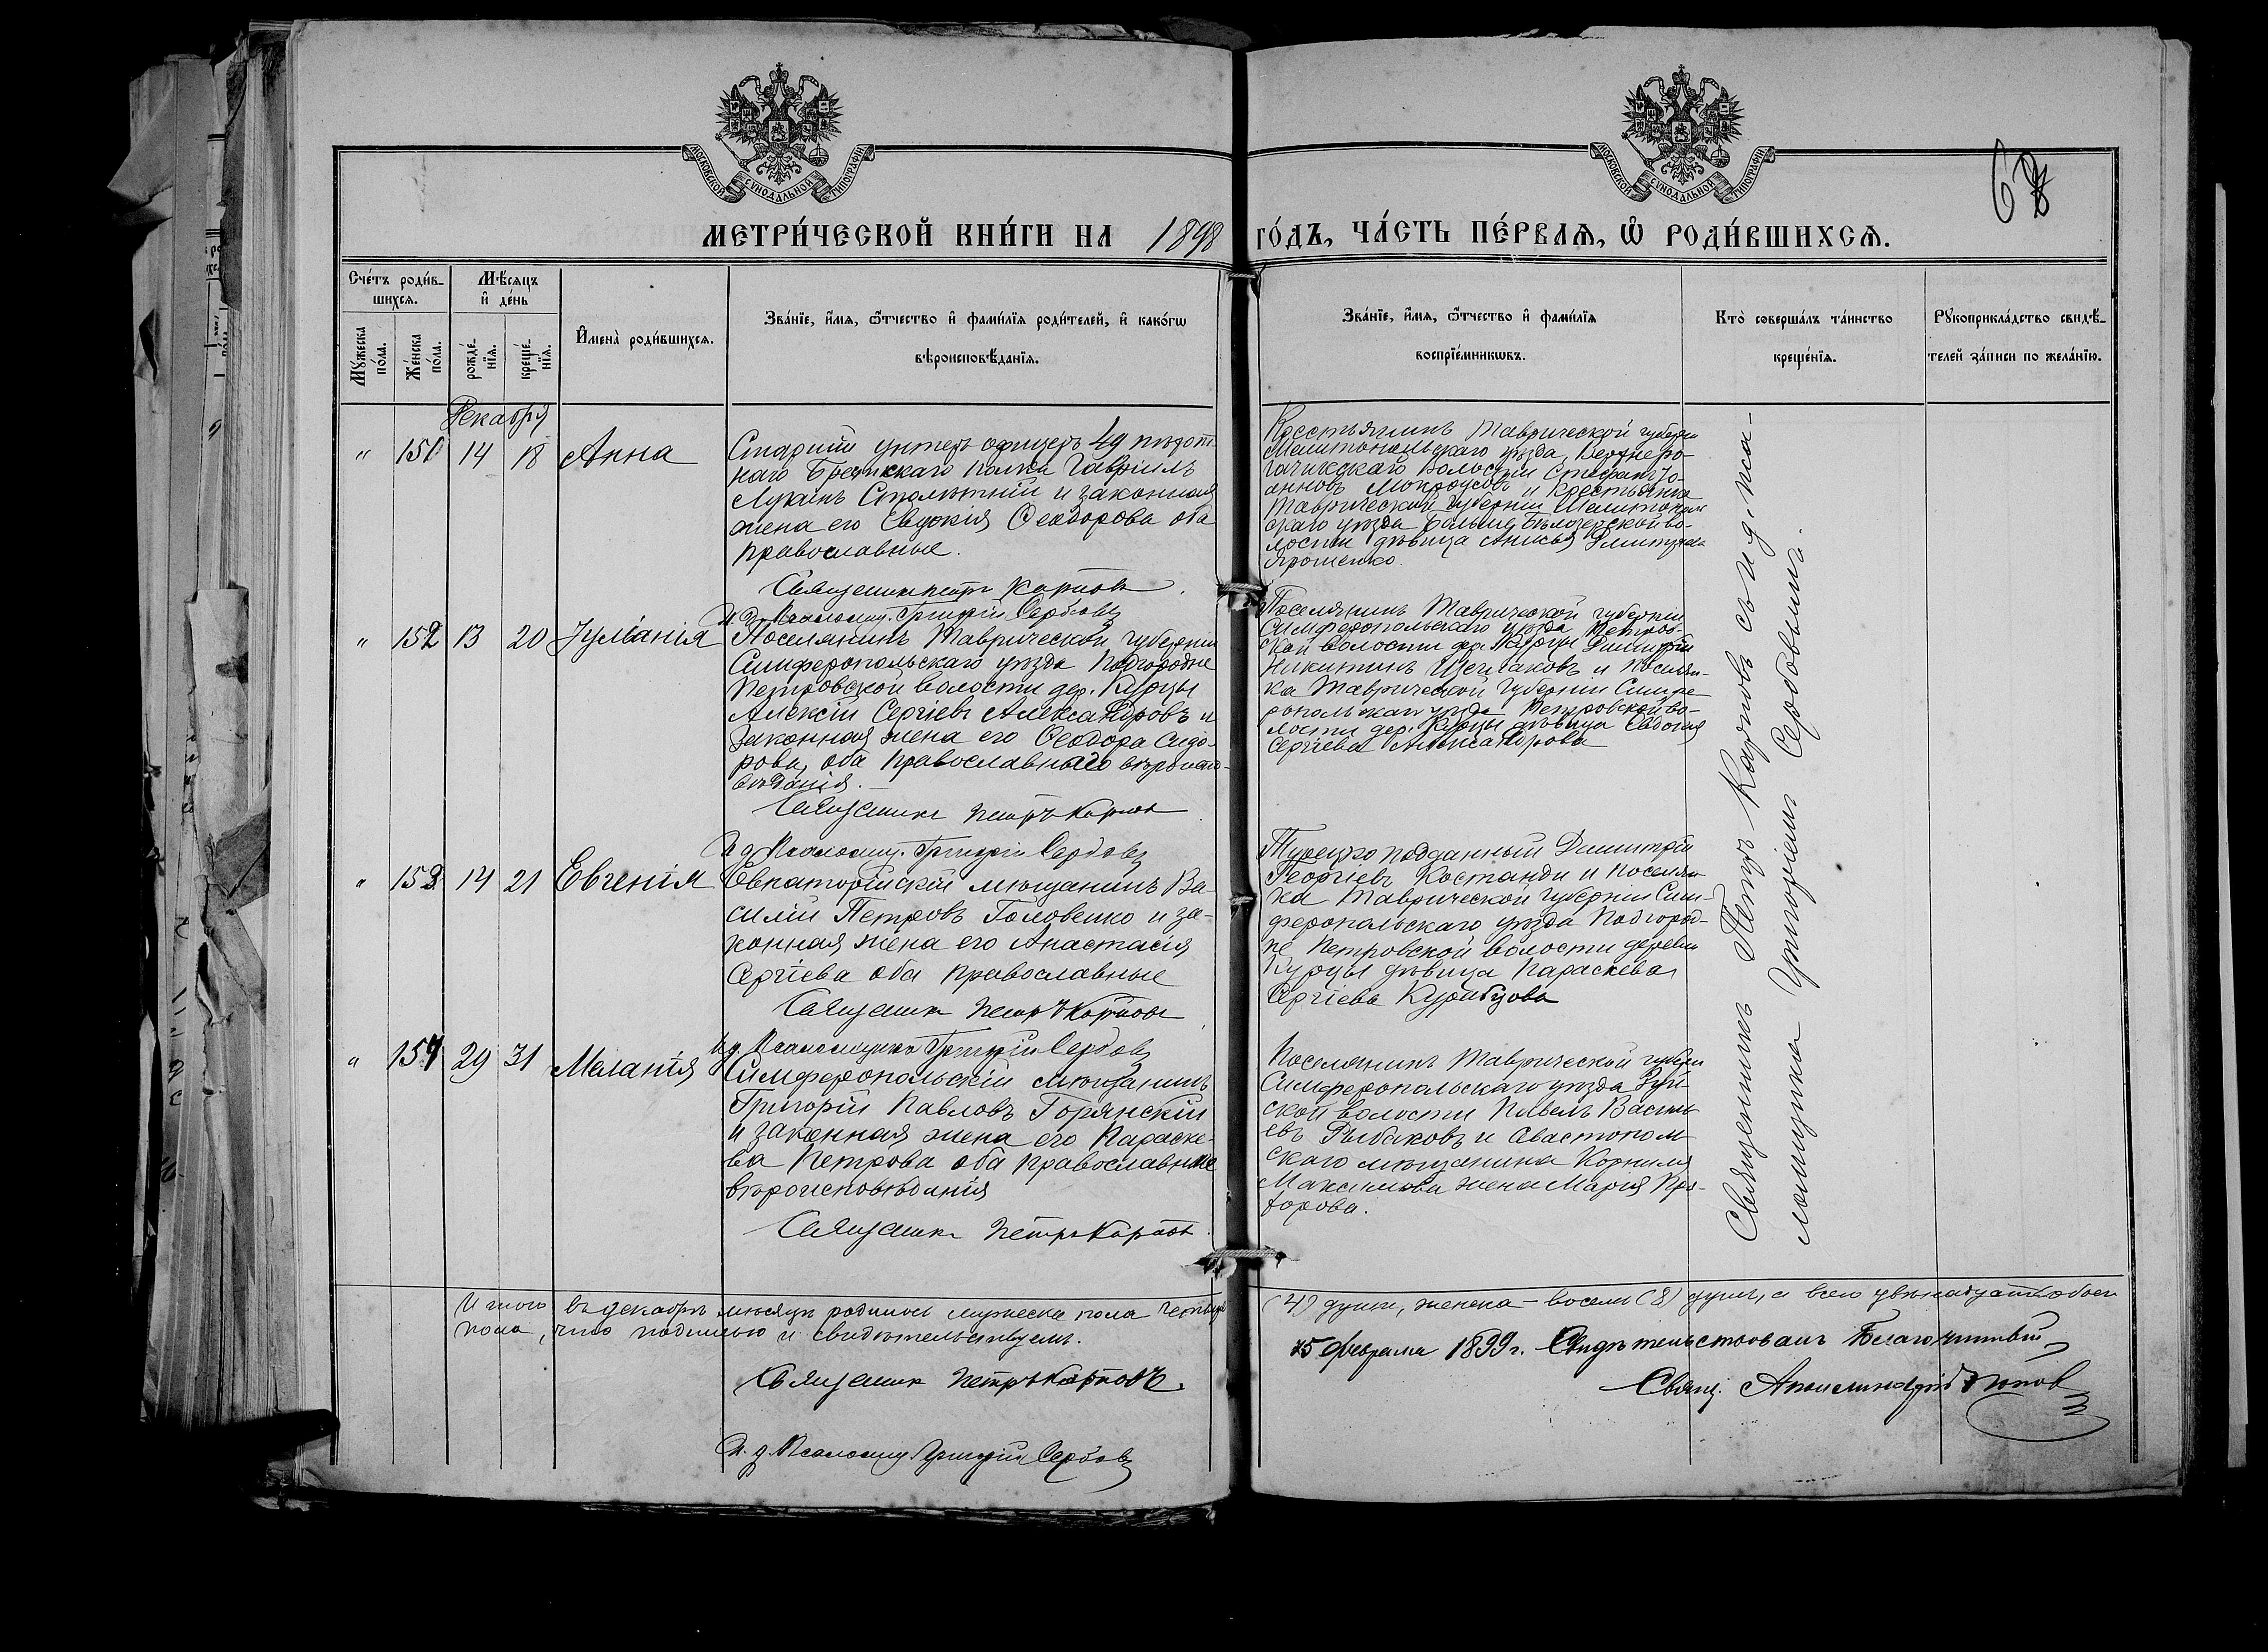 МОСКОВСКОЙ СѴНОДАЛЬНОЙ ТИПОГРАФІИ
МОСКОВСКОЙ СѴНОДАЛЬНОЙ ТИПОГРАФІИ
МЕТРИ́ЧЕСКОЙ КНИ́ГИ НА 1898 ГО́ДЪ, ЧА́СТЬ ПЕ́РВАѦ, Ѡ РОДИ́ВШИХСѦ.
Сче́тъ роди́в-
шихся.
Мѣ́сяцъ
и҆ де́нь
Мꙋ́жеска
по́ла.
Же́нска
по́ла.
рожде́-
нїя.
креще́-
нїя.
И҆мена̀ роди́вшихся.
Зва́нїе, и҆́мя, ѻ҆́тчество и҆ фами́лїя роди́телей, и҆ како́гѡ
вѣроисповѣ́данїя.
Зва́нїе, и҆́мя, ѻ҆́тчество и҆ фами́лїя
воспрїе́мникѡвъ.
Кто̀ соверша́лъ та́инство
креще́нїя.
Рꙋкоприкла́дство свидѣ́-
телей за́писи по жела́нїю.
Декабря
" 151 14 18 Анна
Старшій унтеръ офицеръ 49 пѣхот-
наго Брестскаго полка Гавріилъ
Лукинъ Столѣтній и законная
жена его Евдокія Ѳеодорова оба
православные.
Священникъ Петръ Карповъ
И. д. Псаломщ. Григорій Сербовъ
Крестьянинъ Таврической губерніи
Мелитопольскаго уѣзда, Верхнеро-
гачикскаго волости Стефанъ Іо-
анновъ Мокроусовъ и крестьянка
Таврической губерніи Мелитополь
скаго уѣзда Больше Бѣлозерской во-
лости дѣвица Анисья Димитріева
Ярошенко.
" 152 13 20 Іуліанія
Поселянинъ Таврической губерніи
Симферопольскаго уѣзда Подгородне
Петровской волости дер. Курцы
Алексій Сергіевъ Александровъ и
законная жена его Ѳеодора Сидо-
рова, оба православнаго вѣроиспо-
вѣданія.
Священникъ Петръ Карповъ
И д. Псаломщ. Григорій Сербовъ
Поселянинъ Таврической губерніи
Симферопольскаго уѣзда Петров-
ской волости дер. Курцы Димитрій
Никитинъ и поселян-
ка Таврической губерніи Симфе-
ропольскаго уѣзда Петровской во-
лости дер. Курцы дѣвица Евдокія
Сергіева Александрова
" 153 14 21 Евгенія
Евпаторійскій мѣщанинъ Ва-
силій Петровъ Головенко и за-
конная жена его Анастасія
Сергіева оба православные
Священникъ Петръ Карповъ
И д. Псаломщика Григорій Сербовъ
Турецко подданный Димитрій
Георгіевъ Костанди и поселян-
ка Таврической губерніи Сим-
феропольскаго уѣзда Подгород-
не Петровской волости деревни
Курцы дѣвица Параскева
Сергіева
" 154 29 31 Меланія
Симферопольскій мѣщанинъ
Григорій Павловъ Горянскій
и законная жена его Параске-
ва Петрова оба православные
вѣроисповѣданія
Священникъ Петръ Карповъ
Поселянинъ Таврической губерн
Симферопольскаго уѣзда Зуй-
ской волости Павелъ Василь
евъ Рыбаковъ и Севастополь
скаго мѣщанина Корнилія
Максимова жена Марія
Священникъ Петръ Карповъ съ и. д. пса-
ломщика Григоріемъ Сербовымъ.
Итого въ декабрѣ мѣсяцѣ родилось мужеска пола четыре (4) души, женска - восемь (8) душъ, а всего двѣнадцать обоего
пола, что подписью и свидѣтельствуемъ.
Священникъ Петръ Карповъ.
И. д. Псаломщ. Григорій Сербовъ
15 февраля 1899 г. Свидѣтельствовалъ Благочинный
Свящ. Попов